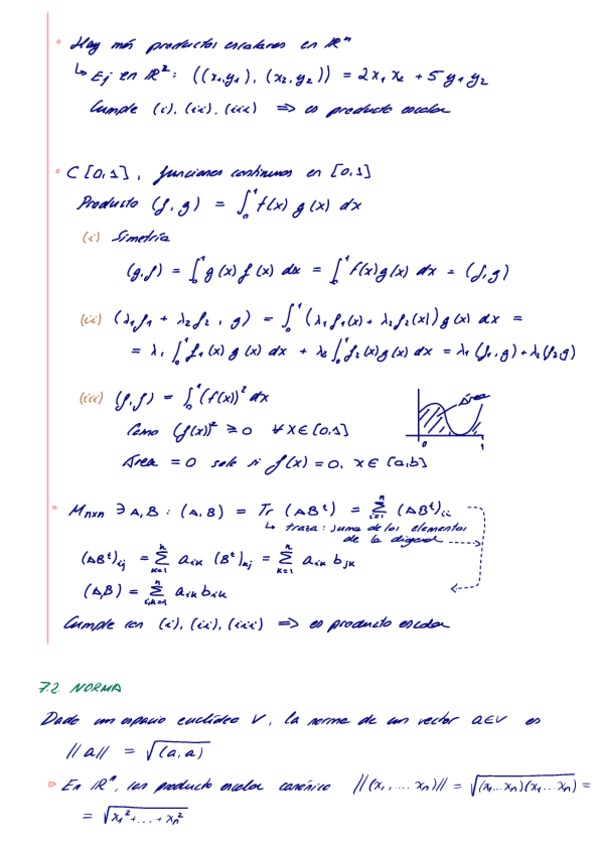 • Hay más productos escalares en ℝⁿ
↳ Ej en ℝ²: ((x₁,y₁), (x₂,y₂)) = 2x₁x₂ + 5y₁y₂
Cumple (i), (ii), (iii) ⇒ es producto escalar
• C[0,1], funciones continuas en [0,1]
Producto (f,g) = ∫₀¹ f(x) g(x) dx
(i) Simetría
(g,f) = ∫₀¹ g(x) f(x) dx = ∫₀¹ f(x)g(x) dx = (f,g)
(ii) (λ₁f₁ + λ₂f₂, g) = ∫₀¹ (λ₁f₁(x) + λ₂f₂(x)) g(x) dx =
= λ₁ ∫₀¹ f₁(x) g(x) dx + λ₂ ∫₀¹ f₂(x) g(x) dx = λ₁(f₁,g) + λ₂(f₂,g)
(iii) (f,f) = ∫₀¹ (f(x))² dx
Área
Como (f(x))² ≥ 0 ∀x∈[0,1]
0 1
Área = 0 solo si f(x) = 0, x∈[a,b]
• Mₙₓₙ ∋ A,B : (A,B) = Tr (ABᵗ) = Σᵢ₌₁ⁿ (ABᵗ)ᵢᵢ
↳ traza: suma de los elementos
de la digonal
(ABᵗ)ᵢⱼ = Σₖ₌₁ⁿ aᵢₖ (Bᵗ)ₖⱼ = Σₖ₌₁ⁿ aᵢₖ bⱼₖ
(A,B) = Σᵢ,ₖ₌₁ⁿ aᵢₖ bᵢₖ
Cumple con (i), (ii), (iii) ⇒ es producto escalar
7.2 NORMA
Dado un espacio euclídeo V, la norma de un vector a∈V es
||a|| = √(a,a)
▷ En ℝⁿ, con producto escalar canónico ||(x₁,...,xₙ)|| = √(x₁...xₙ)(x₁...xₙ) =
= √x₁²+...+xₙ²